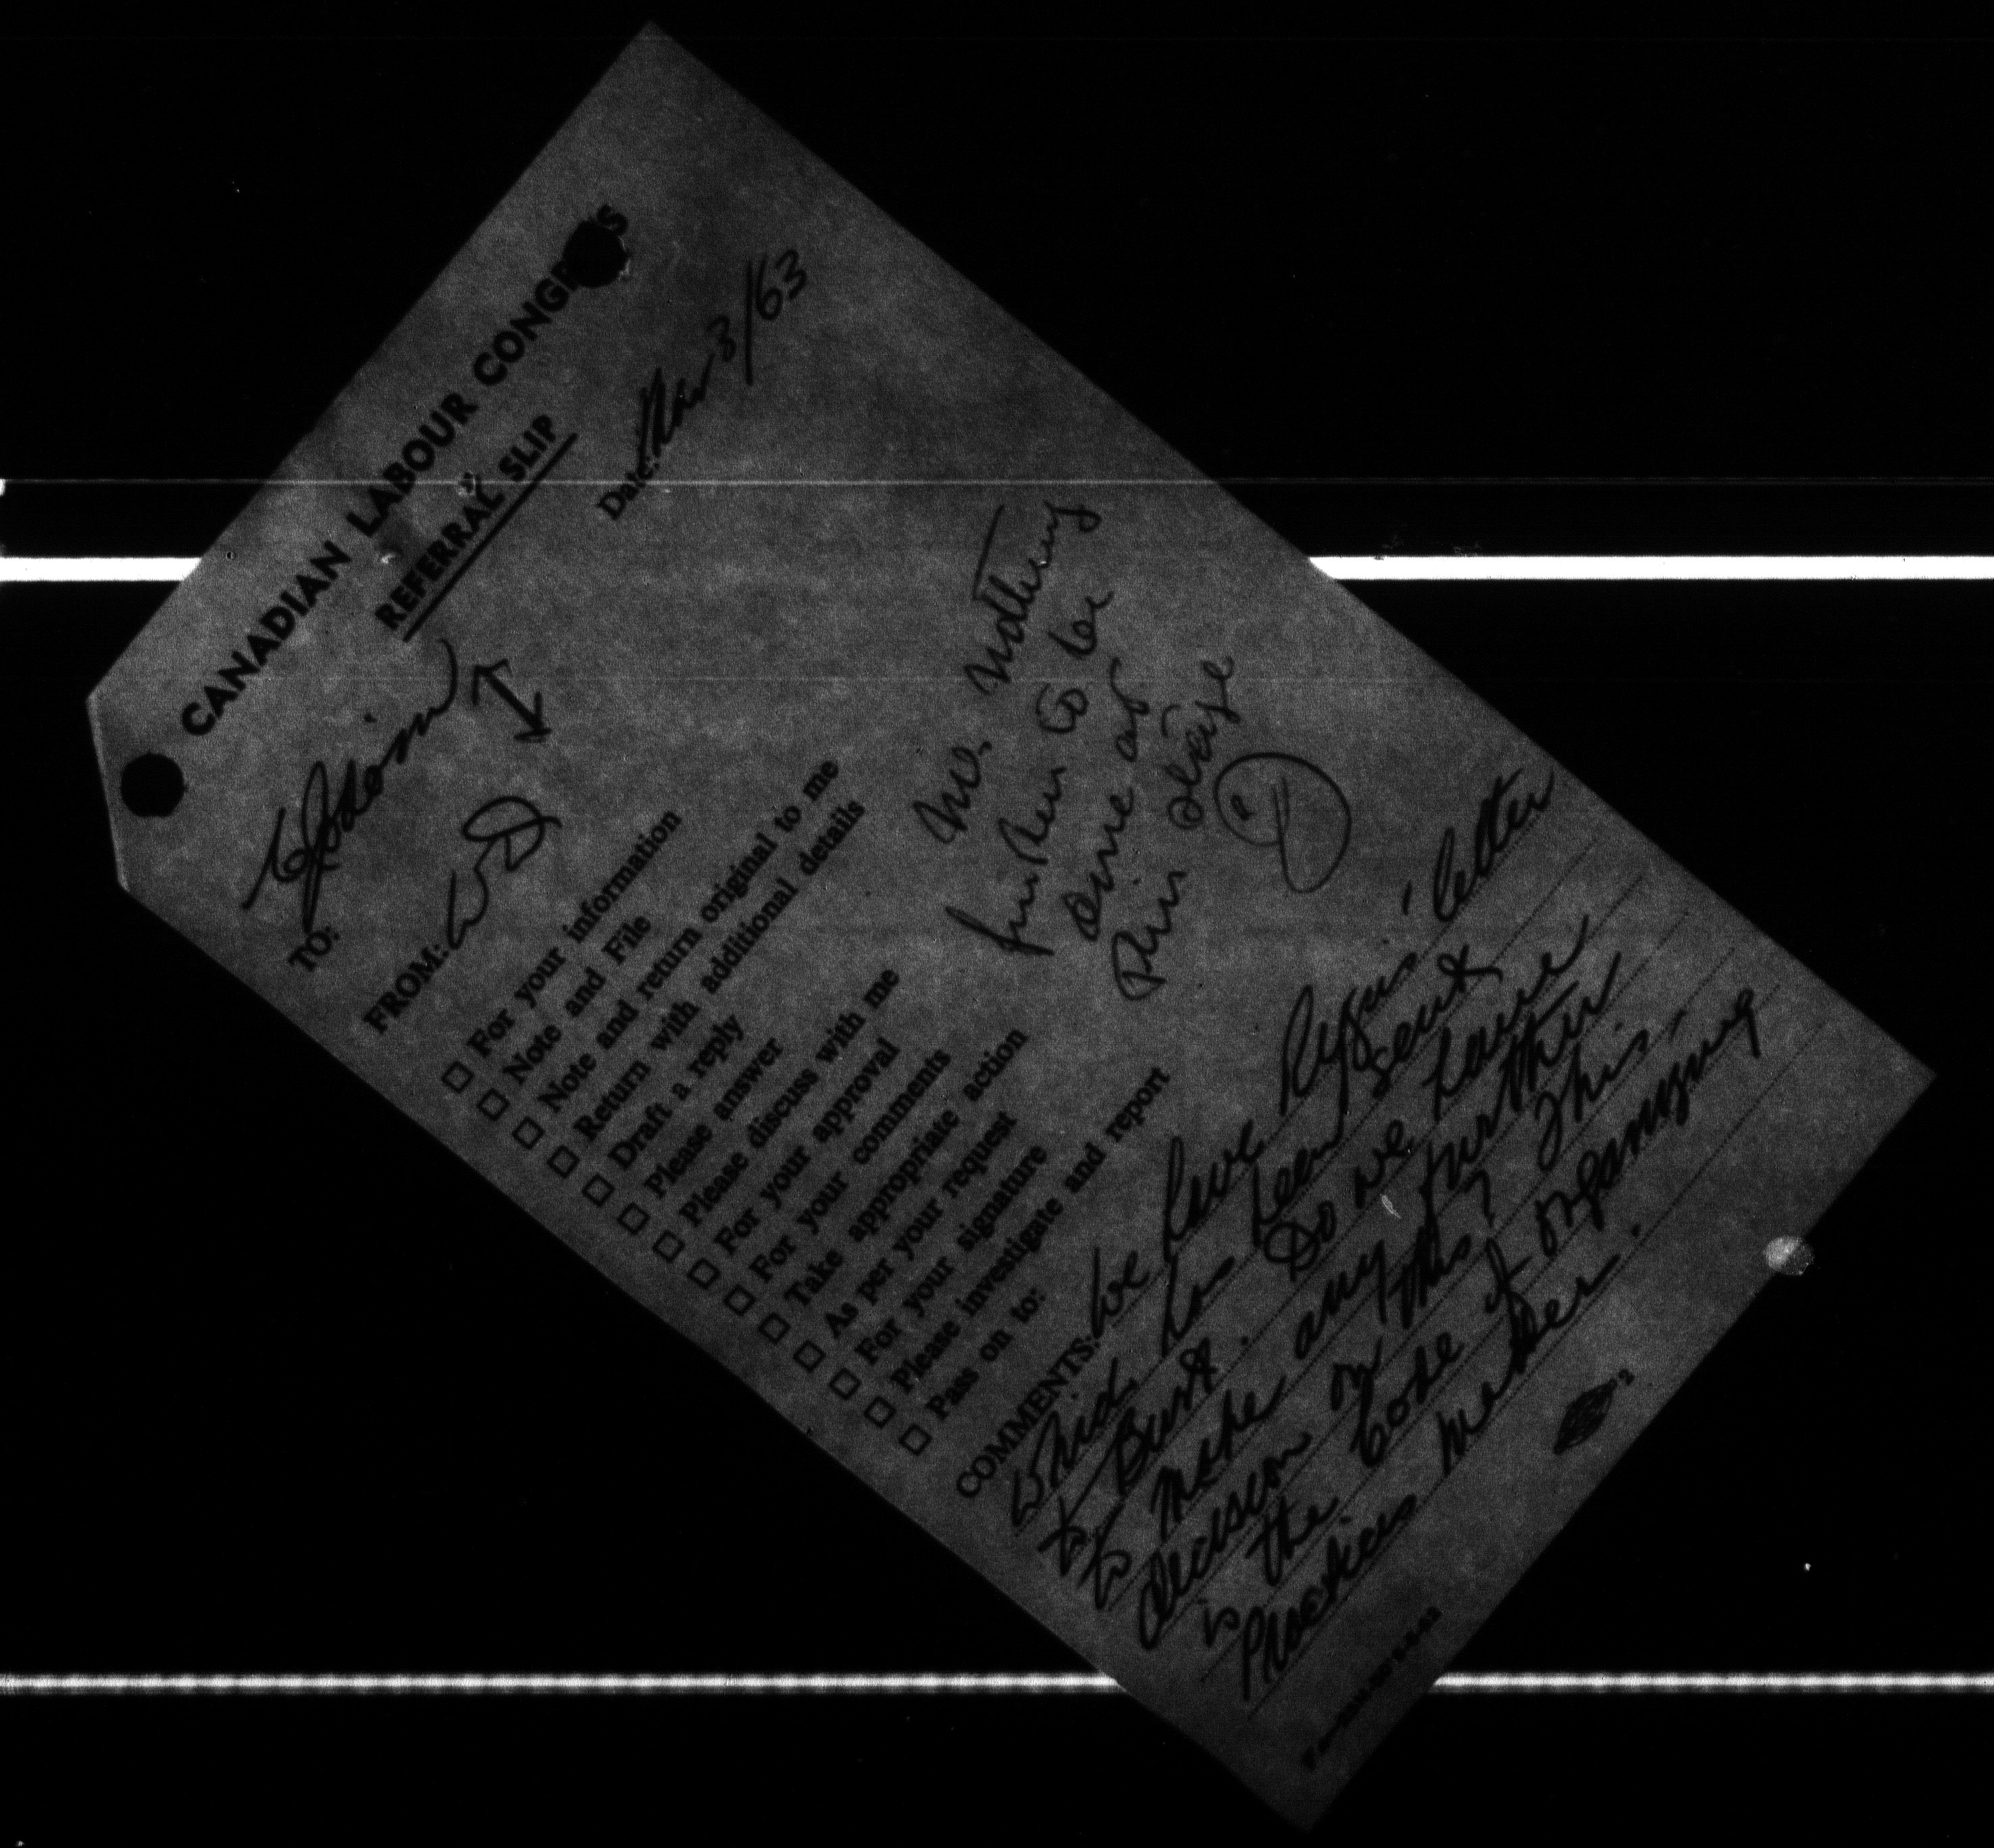 CANADIAN LABOUR CONGRESS
REFERRAL SLIP
Date: Nov 3/63
TO:
FROM: WD
For your information
Note and File
Note and return original to me
Return with additional details
Draft a reply
Please answer
Please discuss with me
For your approval
For your comments
Take appropriate action
As per your request
For your signature
Please investigate and report
Pass on to:
No. Nothing
further to be
done at
this stage
COMMENTS: We have letter
which has been sent
to Burt. Do we have
to make any further
decision on this? This
is the Code of organizing
Practices matter.